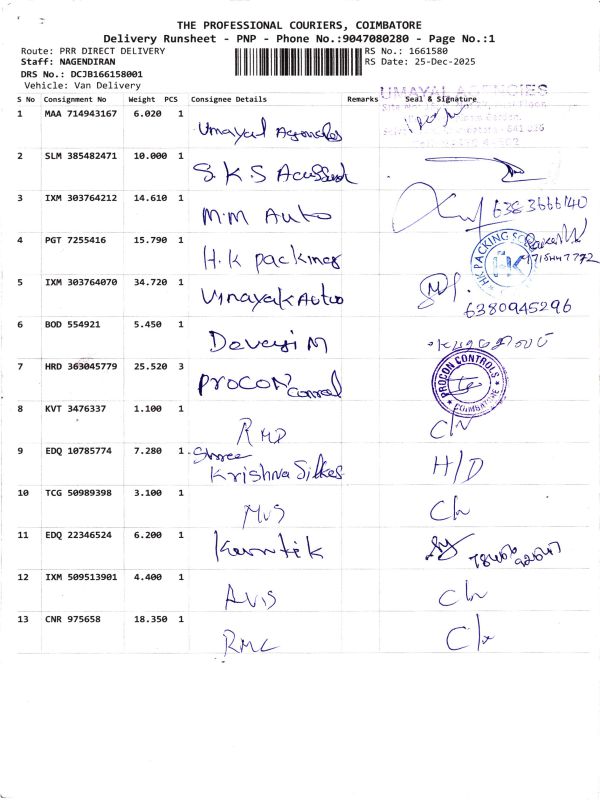 THE PROFESSIONAL COURIERS, COIMBATORE
Delivery Runsheet - PNP - Phone No.:9047080280 - Page No.:1
Route: PRR DIRECT DELIVERY RS No.: 1661580
Staff: NAGENDIRAN RS Date: 25-Dec-2025
DRS No.: DCJB166158001
Vehicle: Van Delivery
S No Consignment No Weight PCS Consignee Details Remarks Seal & Signature
UMAYAL AGENCIES
1 MAA 714943167 6.020 1 Umayal Agencies
2 SLM 385482471 10.000 1 S.K.S
3 IXM 303764212 14.610 1 M.M Auto 6383666140
4 PGT 7255416 15.790 1 H.K packings HK PACKING HK
5 IXM 303764070 34.720 1 Vinayak Auto 6380945296
6 BOD 554921 5.450 1 M
7 HRD 363045779 25.520 3 PROCON Control PROCON CONTROLS COIMBATORE
8 KVT 3476337 1.100 1 RMD
9 EDQ 10785774 7.280 1 Shree Krishna Silkes H/D
10 TCG 50989398 3.100 1 MVS
11 EDQ 22346524 6.200 1 Karntik
12 IXM 509513901 4.400 1 AVIS
13 CNR 975658 18.350 1 RMC